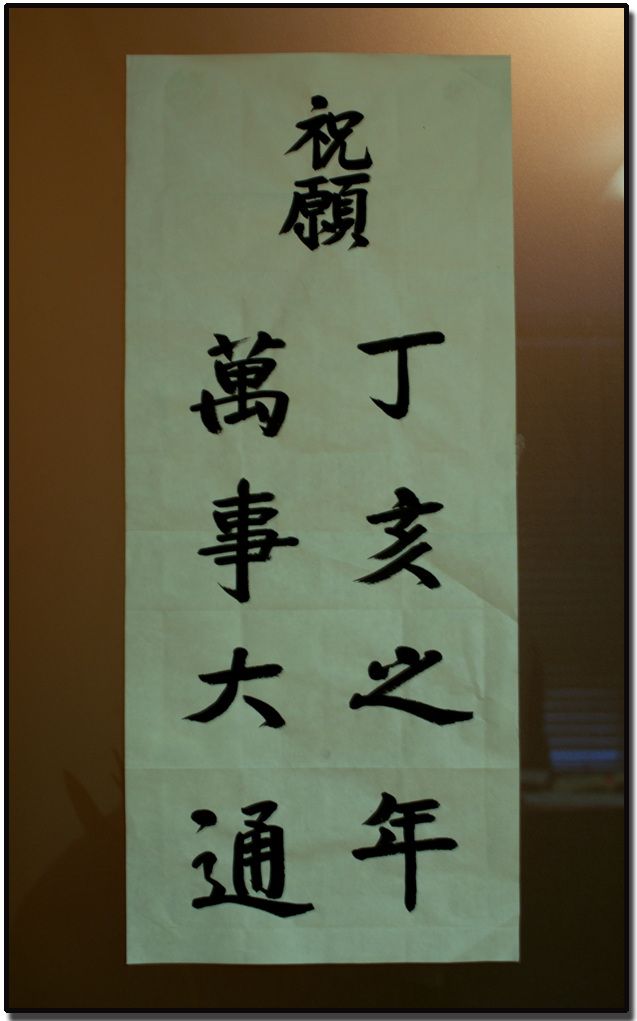 祝願
丁亥之年
萬事大通